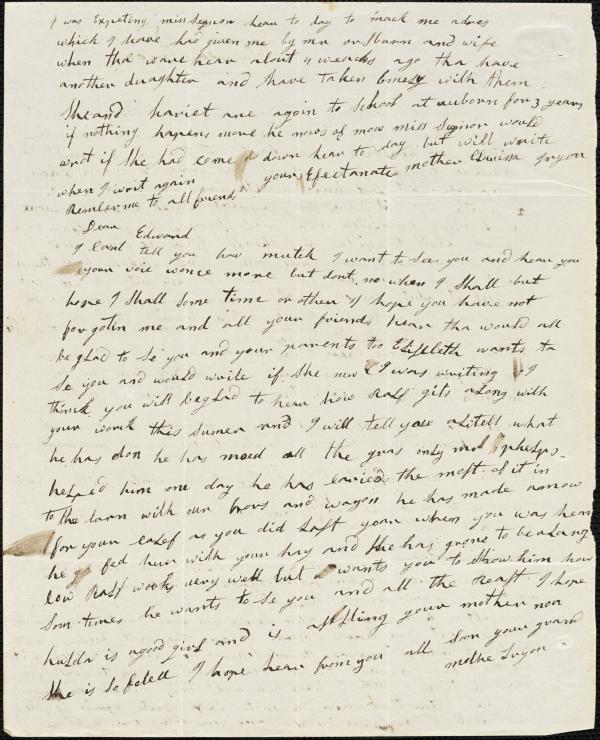 I was Expeting miss Seymor hear to day to mack me adres
which I have had given me by mr orsbarn and wife
when tha ware hear about 4 weacks ago tha have
another daughter and have taken Emely with them
She and hariet are again to School at auborn for 3 years
if nothing hapens more he nows of now miss Seymor would
wrot if She had come down hear to day but will write
when I writ again your Efectanate mother Clarissa Tryon
Rember me to all friends
Dear Edward
I cant tell you how mutch I want to See you and hear you
your voic wonce more but dont no when I Shall but
hope I Shall Some time or other I hope you have not
forgotin me and all your friends hear tha would all
be glad to Se you and your parents too Elisbleth wants to
Se you and would write if She new I was writing I
think you will be glad to hear how Ralf gits along with
your work this Sumer and I will tell you alitell what
he has don he has moed all the gras only mr phelps
helped him one day he has caried the most of it in
to the barn with our hors and wagon he has made a mow
for your calef as you did last year when you was hear
he fed him with your hay and he has grone to be alarg
cow Ralf works very well but wants you to Show him how
Som times he wants to Se you and all the reast I hope
hulda is a good girl and is asisting your mother now
She is So febell I hope hear from you all Son your grand
mothe Tryon